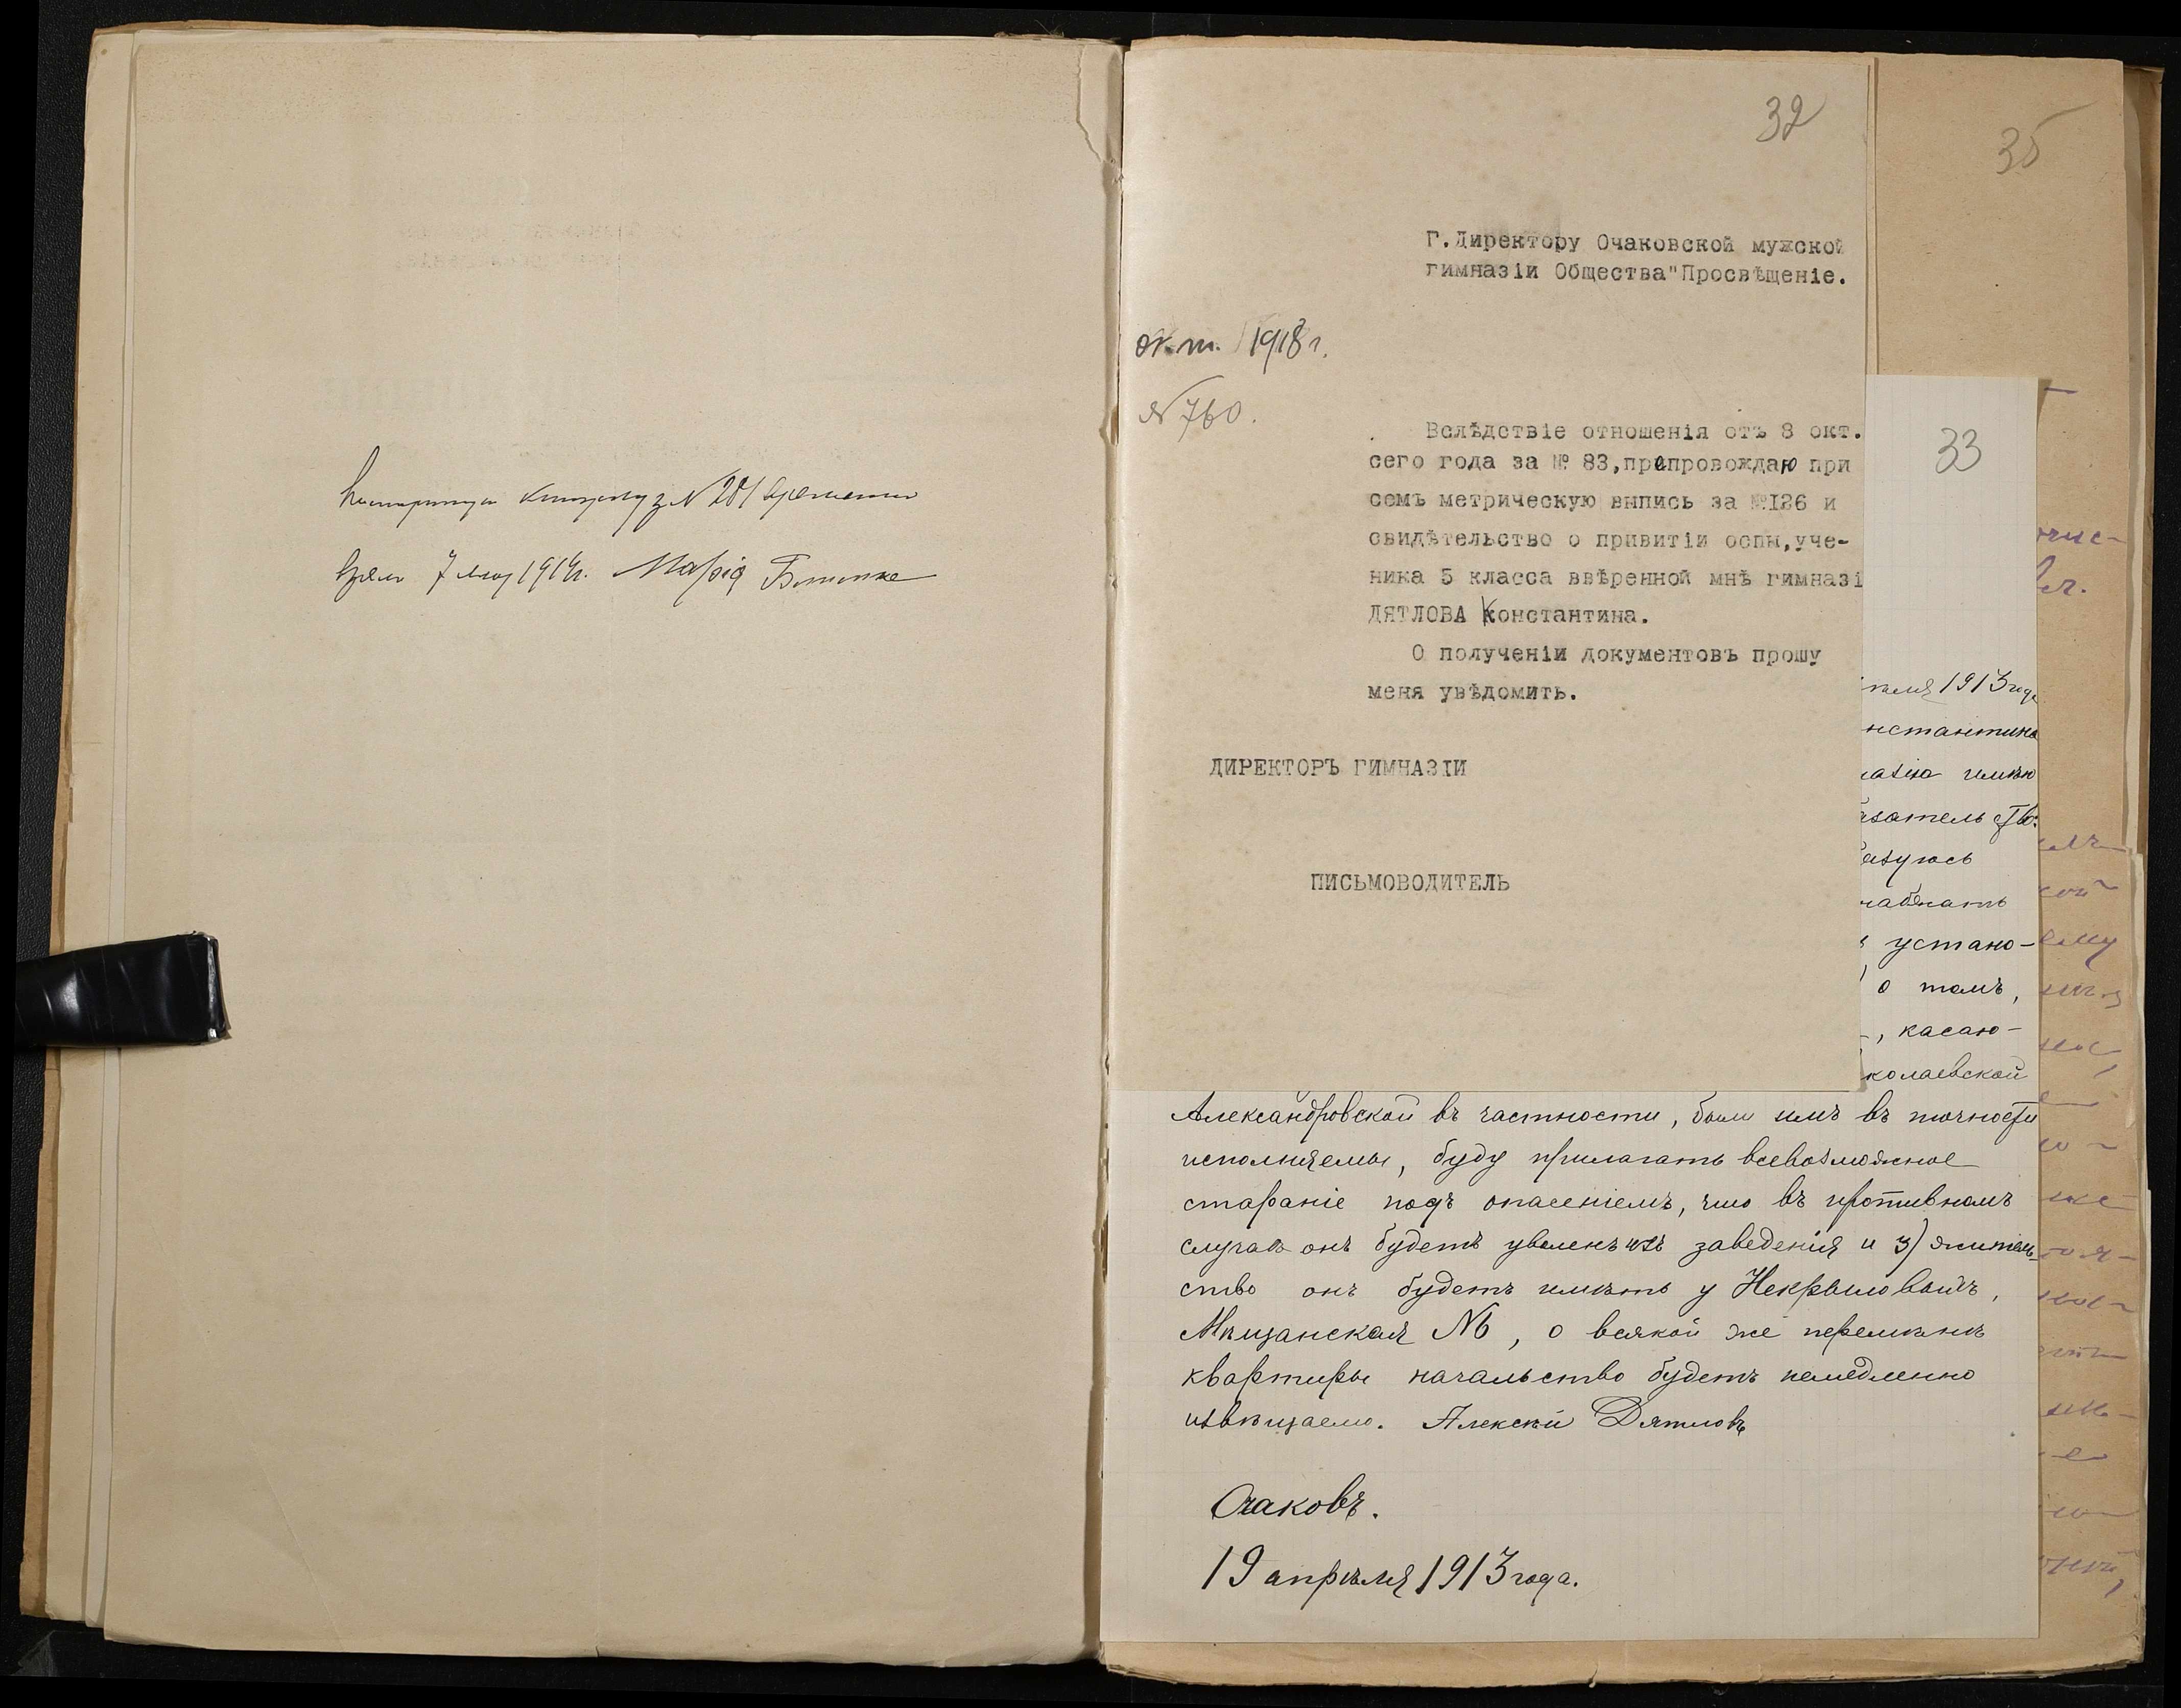 7 1914г. Марія
32
Г.Директору Очаковской мужской
гимназіи Общества"Просвѣщеніе.
окт. 1918 г.
№ 760.
Вслѣдствіе отношенія отъ 8 окт.
сего года за № 83,препровождаю при
семъ метрическую выпись за №126 и
свидѣтельство о привитіи оспы,уче-
ника 5 класса ввѣренной мнѣ гимназі
ДЯТЛОВА Константина.
О полученіи документовъ прошу
меня увѣдомить.
ДИРЕКТОРЪ ГИМНАЗІИ
ПИСЬМОВОДИТЕЛЬ
33
1913 года
нстантина
имѣю
азатель
азуюсь
набжать
устано-
о томъ,
, касаю-
колаевской
Александровской въ частности, были имъ въ точности
исполняемы, буду прилагать всевозможное
стараніе подъ опасеніемъ, что въ противномъ
случаѣ онъ будетъ уволенъ изъ заведенія и 3) житель-
ство онъ будетъ имѣть у Некрыловыхъ,
Мѣщанская №6, о всякой же перемѣнѣ
квартиры начальство будетъ немедленно
извѣщаемо. Алексѣй Дятловъ
Очаковъ.
19 апрѣля 1913 года.
35